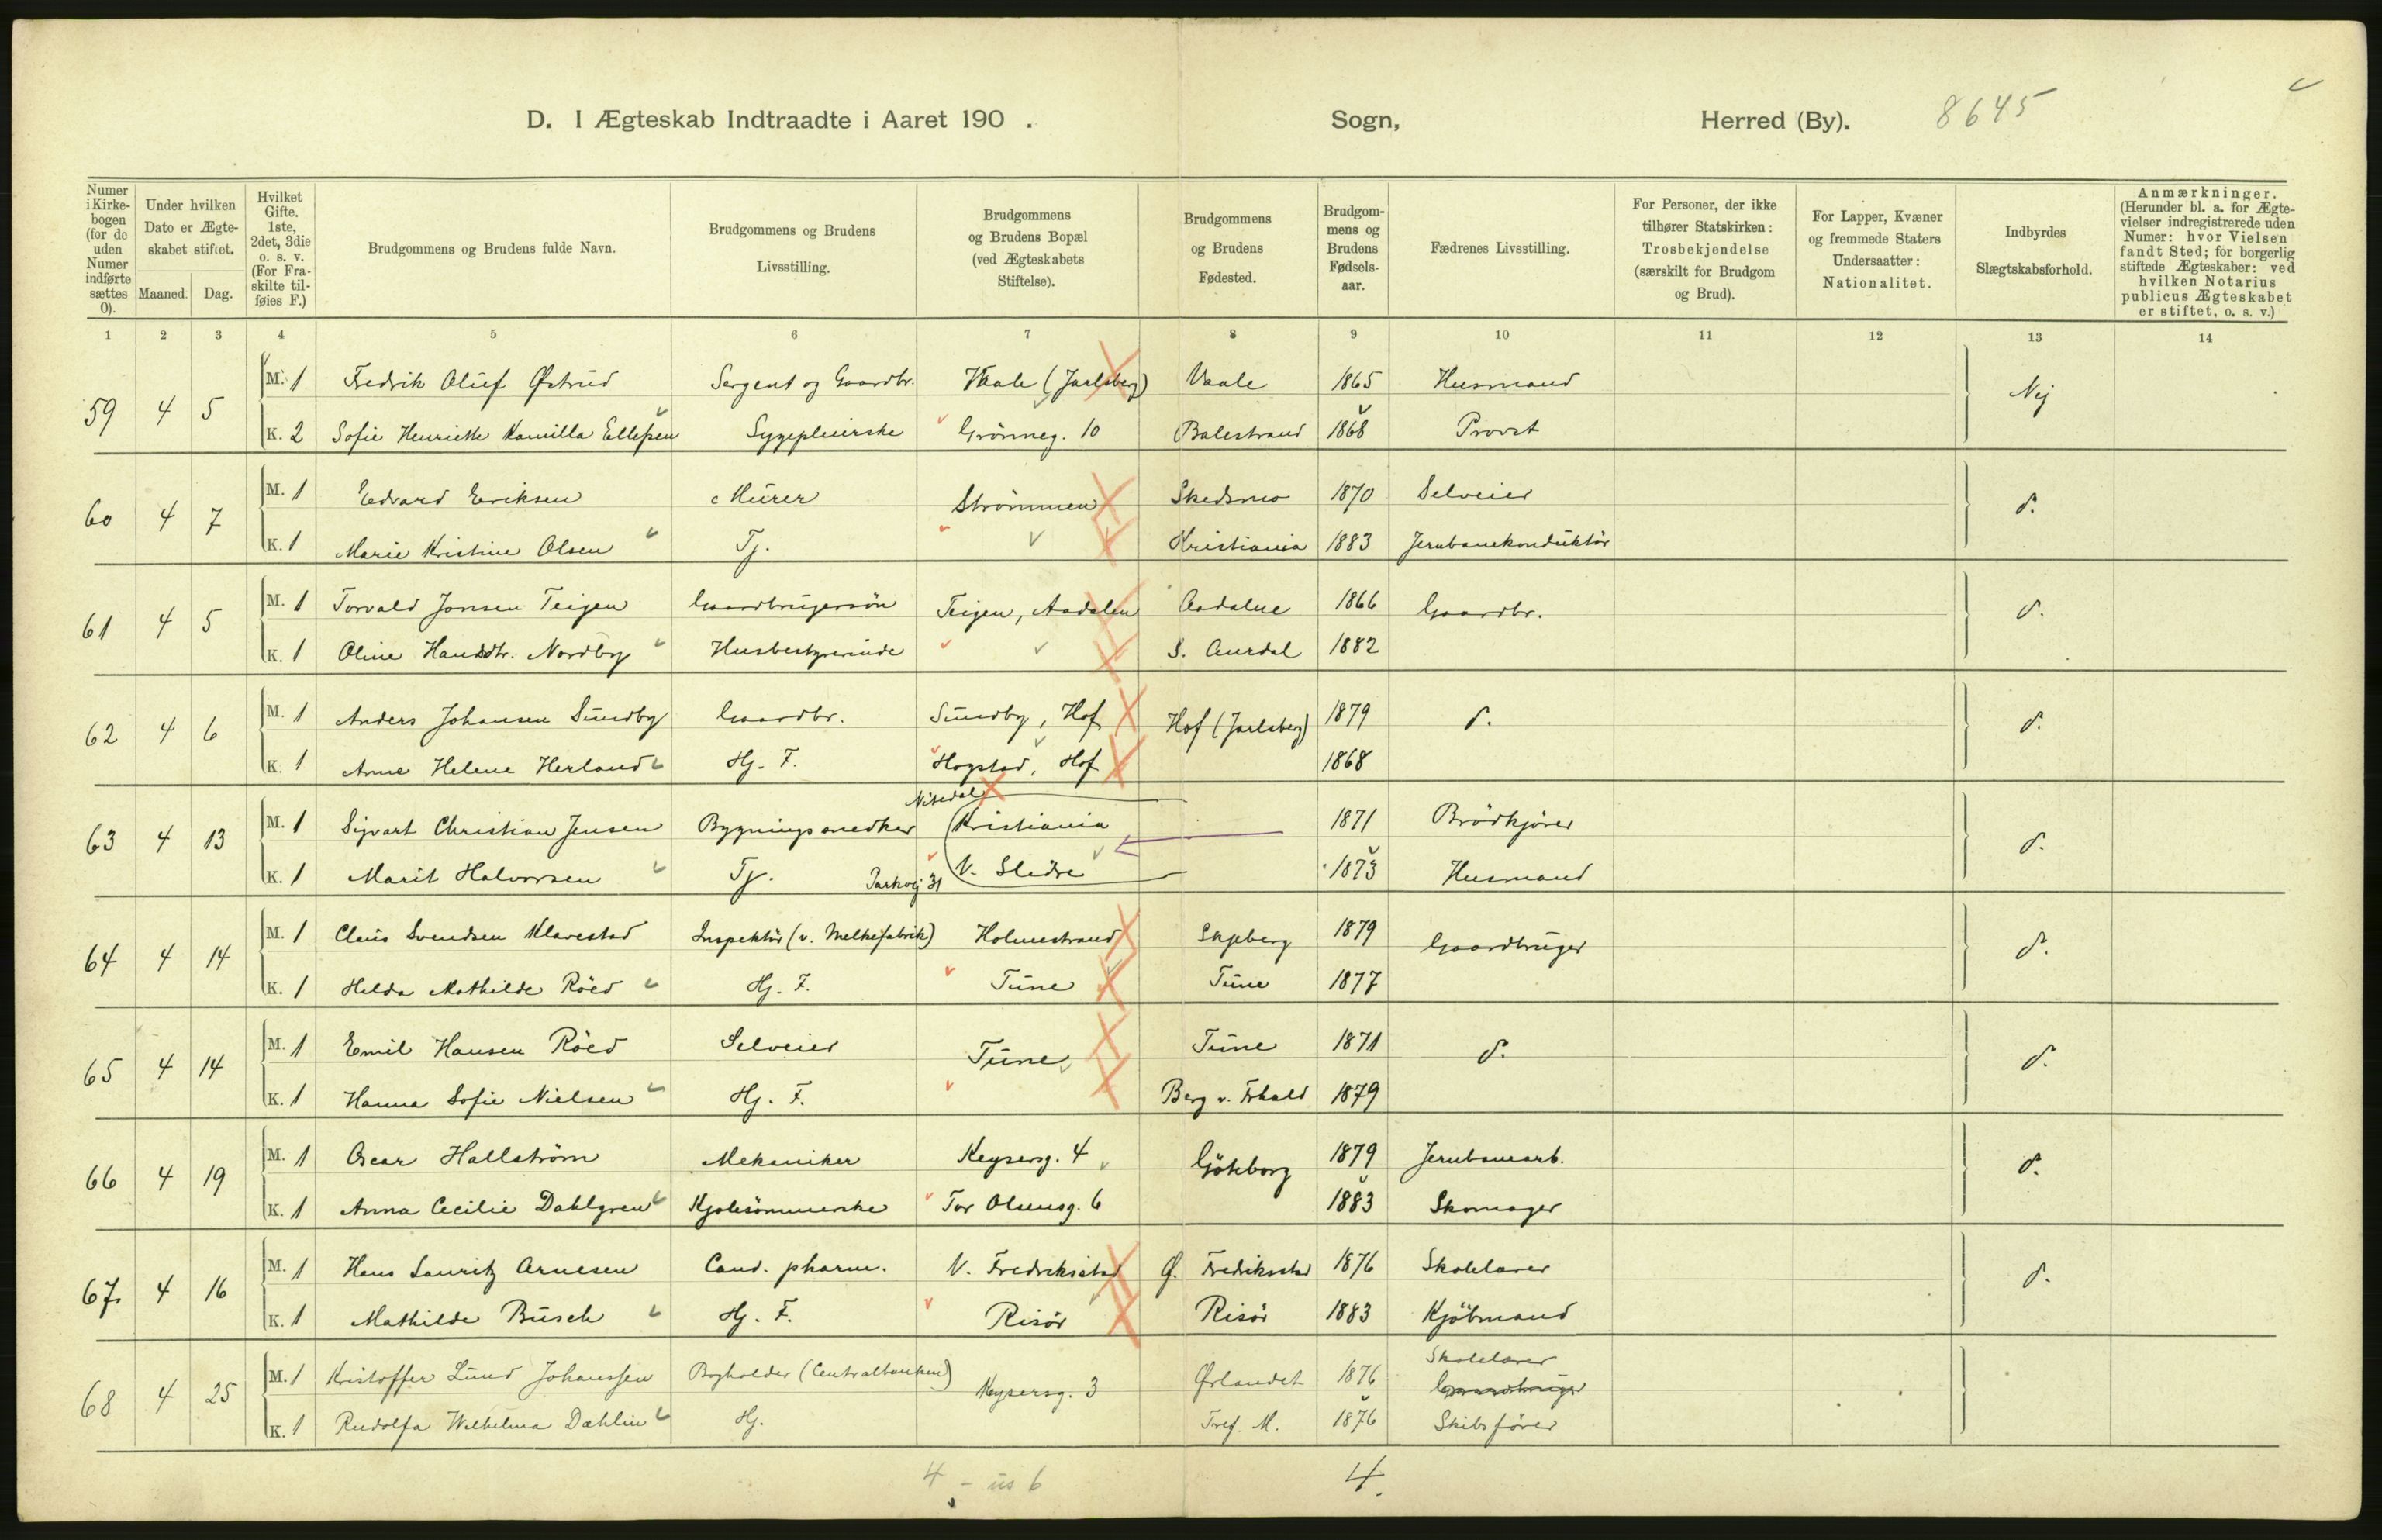 8645
D. I Ægteskab Indtraadte i Aaret 190 . Sogn, Herred (By).
Numer i Kirkebogen (for de uden Numer indførte sættes 0).
Under hvilken Dato er Ægteskabet stiftet.
Maaned. Dag.
Hvilket Gifte. 1ste, 2det, 3die o. s. v. (For Fraskilte tilføies F.)
Brudgommens og Brudens fulde Navn.
Brudgommens og Brudens Livsstilling.
Brudgommens og Brudens Bopæl (ved Ægteskabets Stiftelse).
Brudgommens og Brudens Fødested.
Brudgommens og Brudens Fødselsaar.
Fædrenes Livsstilling.
For Personer, der ikke tilhører Statskirken: Trosbekjendelse (særskilt for Brudgom og Brud).
For Lapper, Kvæner og fremmede Staters Undersaatter: Nationalitet.
Indbyrdes Slægtskabsforhold.
Anmærkninger. (Herunder bl. a. for Ægtevielser indregistrerede uden Numer: hvor Vielsen fandt Sted; for borgerlig stiftede Ægteskaber: ved hvilken Notarius publicus Ægteskabet er stiftet, o. s. v.)
1 2 3 4 5 6 7 8 9 10 11 12 13 14
59 4 5 M. 1 Fredrik Oluf Østrud Sergent og Gaardbr. Vaale (Jarlsberg) Vaale 1865 Husmand Nej
K. 2 Sofie Henriette Kamilla Ellefsen Sygepleierske Grönneg. 10 Balestrand 1868 Provst
60 4 7 M. 1 Edvard Eriksen Murer Strömmen Skedsmo 1870 Selveier d.
K. 1 Marie Kristine Olsen Tj. Kristiania 1883 Jernbanekonduktör
61 4 5 M. 1 Torvald Jonsen Teigen Gaardbrugersön Teigen, Aadalen Aadalne 1866 Gaardbr. d.
K. 1 Oline Hansdtr. Nordby Husbestyrerinde S. Aurdal 1882
62 4 6 M. 1 Anders Johansen Sundby Gaardbr. Sundby, Hof Hof (Jarlsberg) 1879 d. d.
K. 1 Anne Helene Herland Hj. F. Hogstad, Hof 1868
Nitedal
63 4 13 M. 1 Sigvart Christian Jensen Bygningssnedker Kristiania 1871 Brödkjörer d.
K. 1 Marit Halvorsen Tj. Parkvej 31 V. Slidre 1873 Husmand
64 4 14 M. 1 Claus Svendsen Klavestad Inspektör (v. Melkefabrik) Holmestrand Skjeberg 1879 Gaardbruger d.
K. 1 Helda Mathilde Röed Hj. F. Tune Tune 1877
65 4 14 M. 1 Emil Hansen Röed Selveier Tune Tune 1871 d. d.
K. 1 Hanna Sofie Nielsen Hj. F. Berg v. Frhald 1879
66 4 19 M. 1 Oscar Hallström Mekaniker Keysersg. 4 Göteborg 1879 Jernbanearb. d.
K. 1 Anna Cecilie Dahlgren Kjolesömmerske Tor Olsensg. 6 1883 Skomager
67 4 16 M. 1 Hans Lauritz Arnesen Cand. pharm. V. Fredriksstad Ø. Fredriksstad 1876 Skolelærer d.
K. 1 Mathilde Busch Hj. F. Risör Risör 1883 Kjöbmand
68 4 25 M. 1 Kristoffer Lund Johanssen Bogholder (Centralbanken) Keysersg. 3 Ørlandet 1876 Skolelærer Gaardbruger
K. 1 Rudolfa Wilhelma Dæhlin Hj. Tref. M. 1876 Skibsförer
4 - us 6 4.